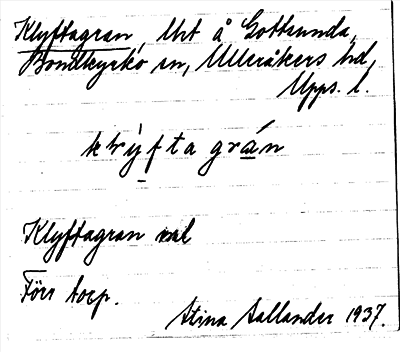 Klyftagran, lht å Gottsunda,
Bondkyrko sn, Ulleråkers hd,
Upps. l.
klyfta grán
Klyftagran
Förr torp.
Stina Sallander 1937.